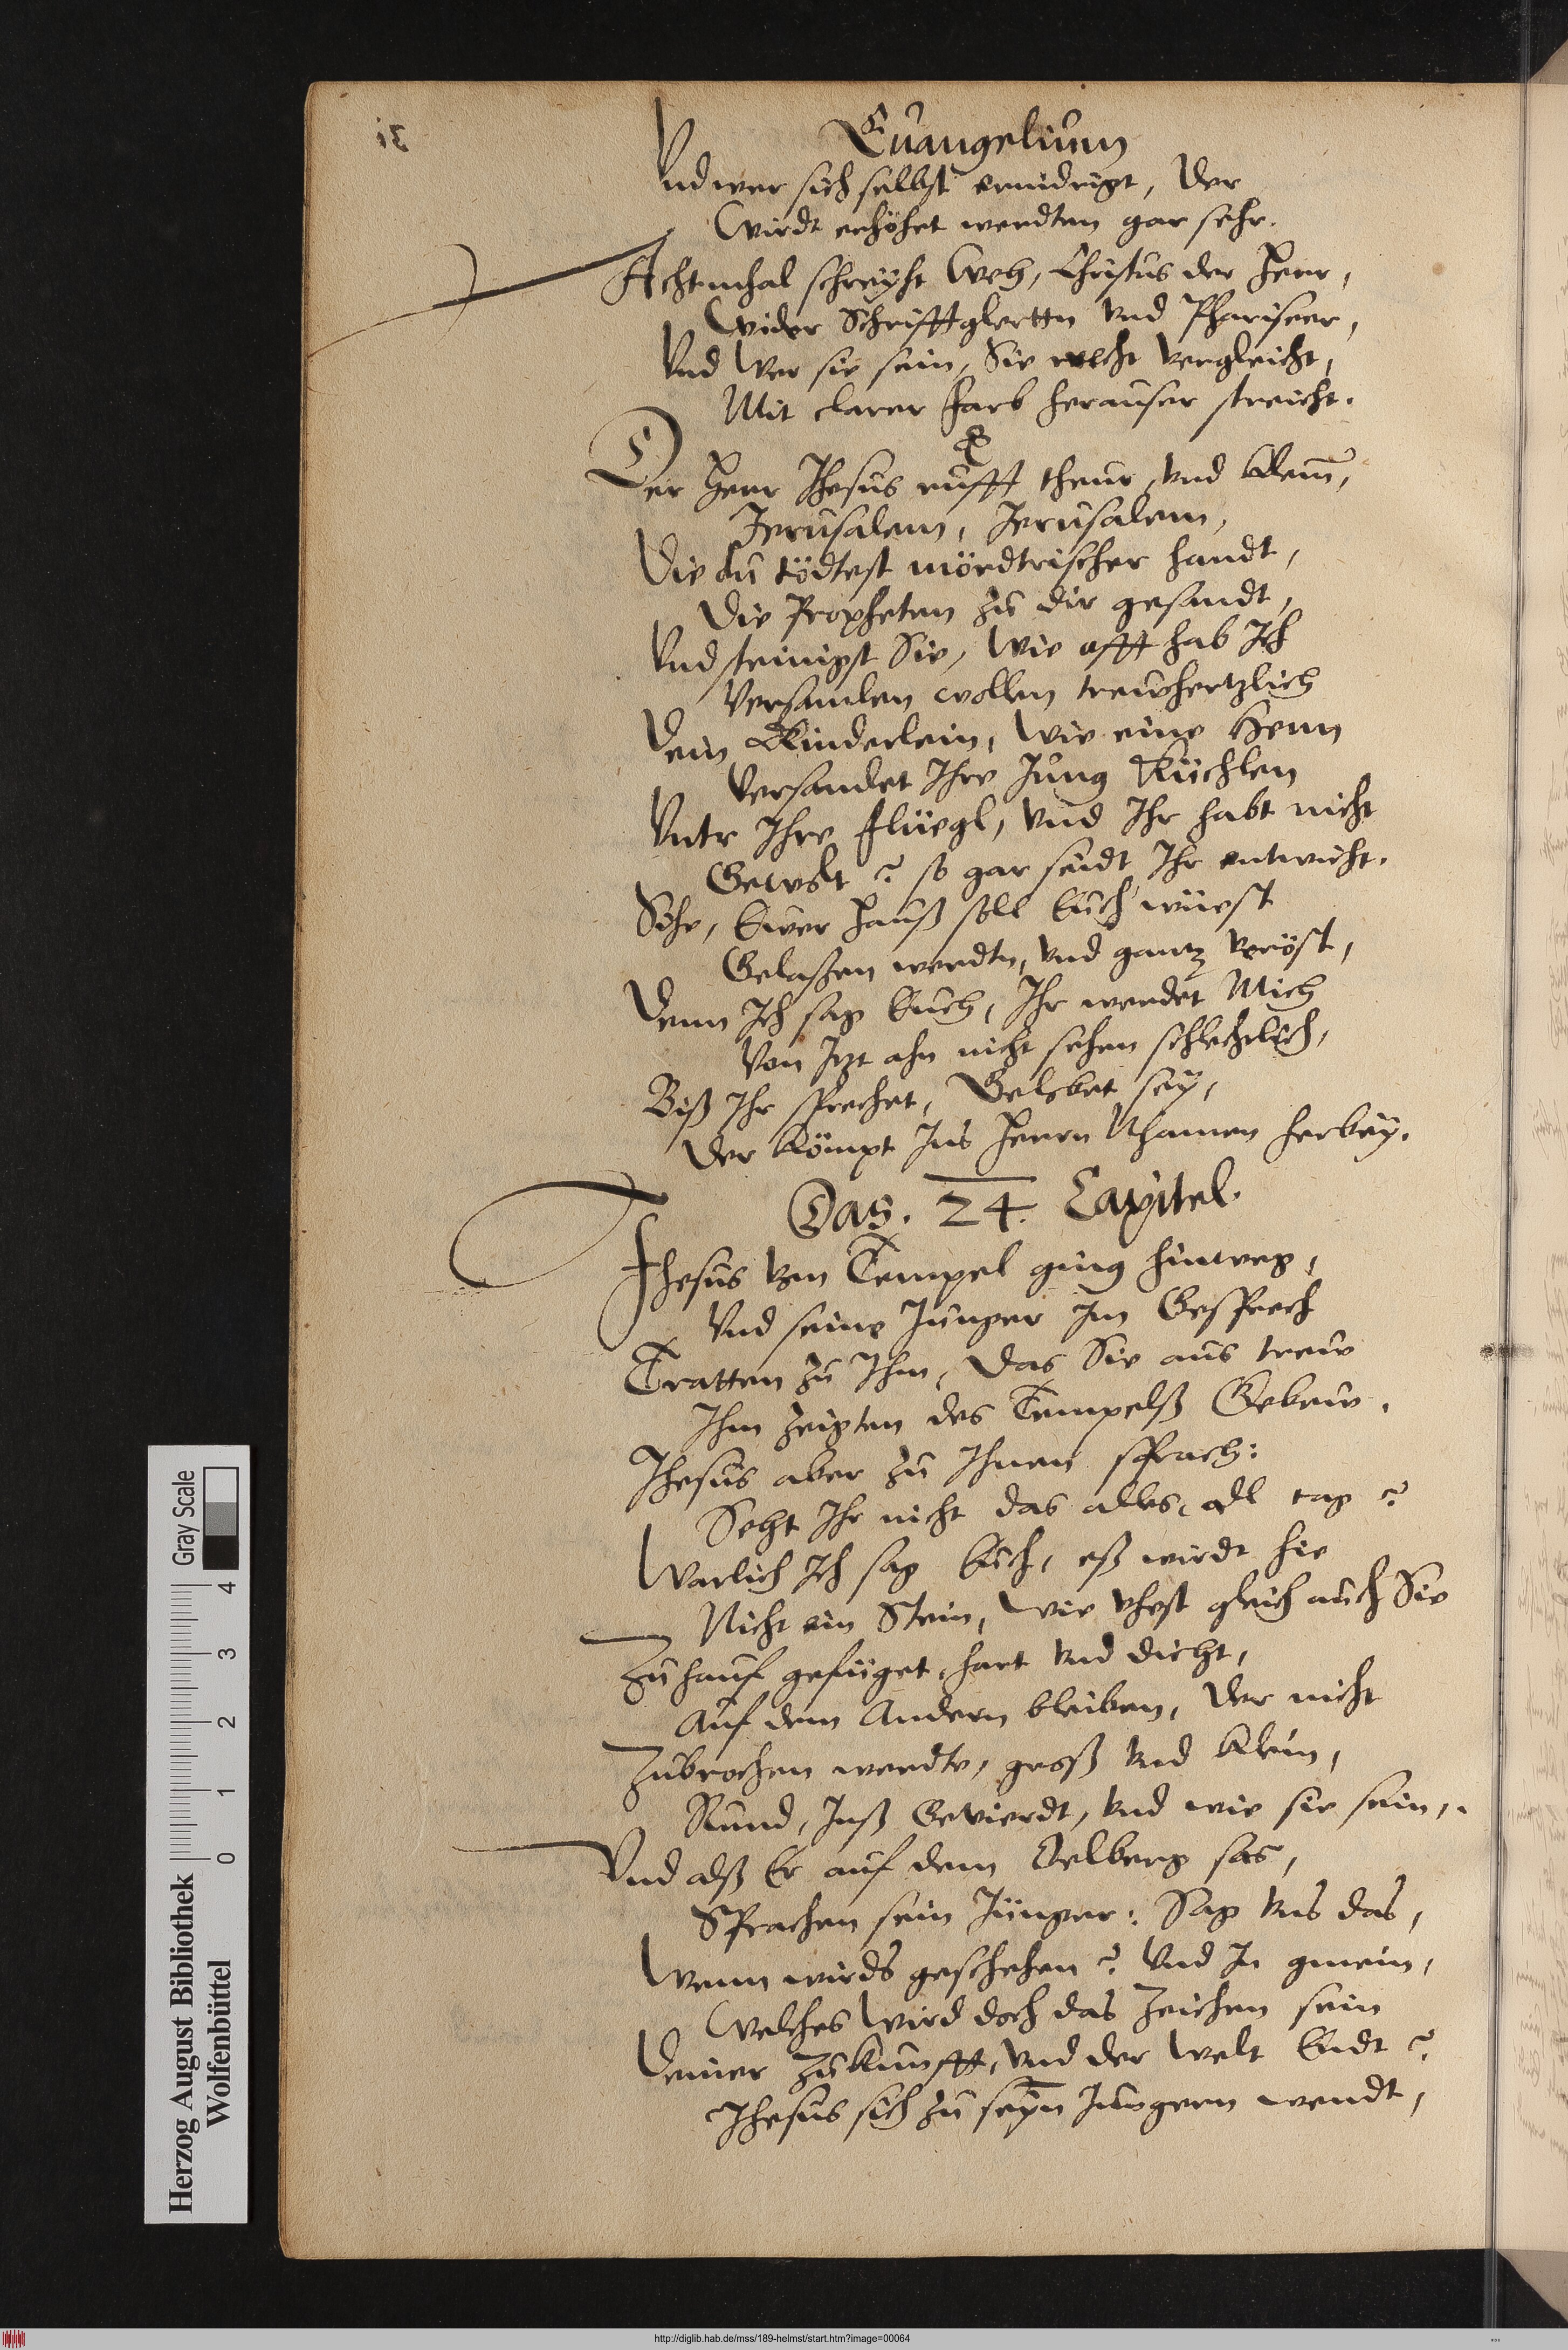 Euangelium
Vnd wer sich selbst ernidrigt, Der
Wirdt erhöhet werdten gar sehr.
Achtmhal schreyht Weh, Christus der Herr,
Wider Schrifftglertten vnd Phariseer,
Vnd Wer sie sein, Sie recht vergleicht,
Mit clarer Farb herausser streicht.
Der Herr Jhesus rufft theur, vnd klem̄,
Jerusalem, Jerusalem,
Die du tödtest mördtrischer handt,
Die Propheten zu dir gesandt,
Vnd steinigst Sie, Wie offt hab Ich
Versamlen wollen trewhertzlich
Dein Kinderlein, Wie eine Henn
Versamlet Ihre Jung Küchlen
Vntr Ihre Flüegl, Vnd Ihr habt nicht
Gewolt? so gar seidt Ihr entwicht.
Sihe, Ewer Hauß soll Euch wüest
Gelaßen werdtn, vnd gantz
Denn Ich sag Euch, Ihr werdet Mich
Von Jtzt ahn nicht sehen schlechtlich,
Biß Ihr sprechet, Gelobet sey,
Der kömpt Ins Herrn Nhamen herbey.
Das. 24. Capitel.
Jhesus vom Tempel ging hinweg,
Vnd seine Junger Im Gesprech
Tratten zu Ihm, Das Sie aus trew
Ihm zeigten des Tempelß Gebew.
Jhesus aber zu Ihnen sprach:
Seht Ihr nicht das alles, all tag?
Warlich Ich sag Euch, eß wirdt hie
Nicht ein Stein, Wie vhest gleich auch Sie
Zuhauf gefüget, hart vnd dicht,
Auf dem Andern bleiben, Der nicht
Zubrochen werdte, groß vnd klein,
Rund, Inß Gevierdt, vnd wie sie sein,
Vnd alß Er auf dem Oelberg sas,
Sprachen sein Jünger: Sag vns das,
Wenn wirds geschehen? Vnd In gmein,
Welches Wird doch das Zeichen sein
Deiner Zukunfft, vnd der Welt Endt?
Jhesus sich zu seyn̄ Jungern wendt,
31
Herzog August Bibliothek
Wolfenbüttel
0 1 2 3 4
Gray Scale
http://diglib.hab.de/mss/189-helmst/start.htm?image=00064